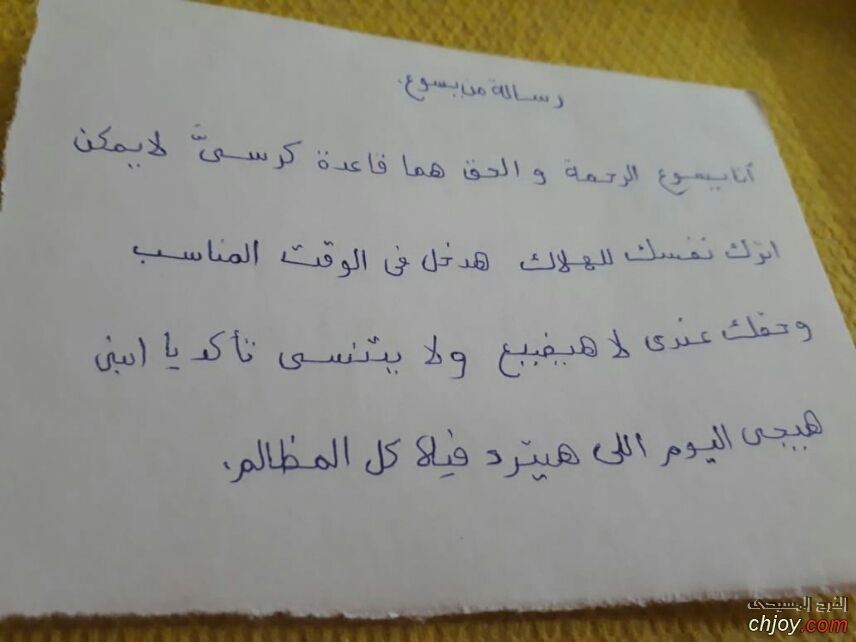 رسالة من يسوع.
أنا يسوع الرحمة و الحق هما قاعدة كرسىّ لا يمكن
اترك نفسك للهلاك هدخل فى الوقت المناسب
وحقك عندى لا هيضيع ولا يتنسى تأكد يا ابنى
هييجى اليوم اللى هيترد فيه كل المظالم.
الفرح المسيحى
chjoy.com